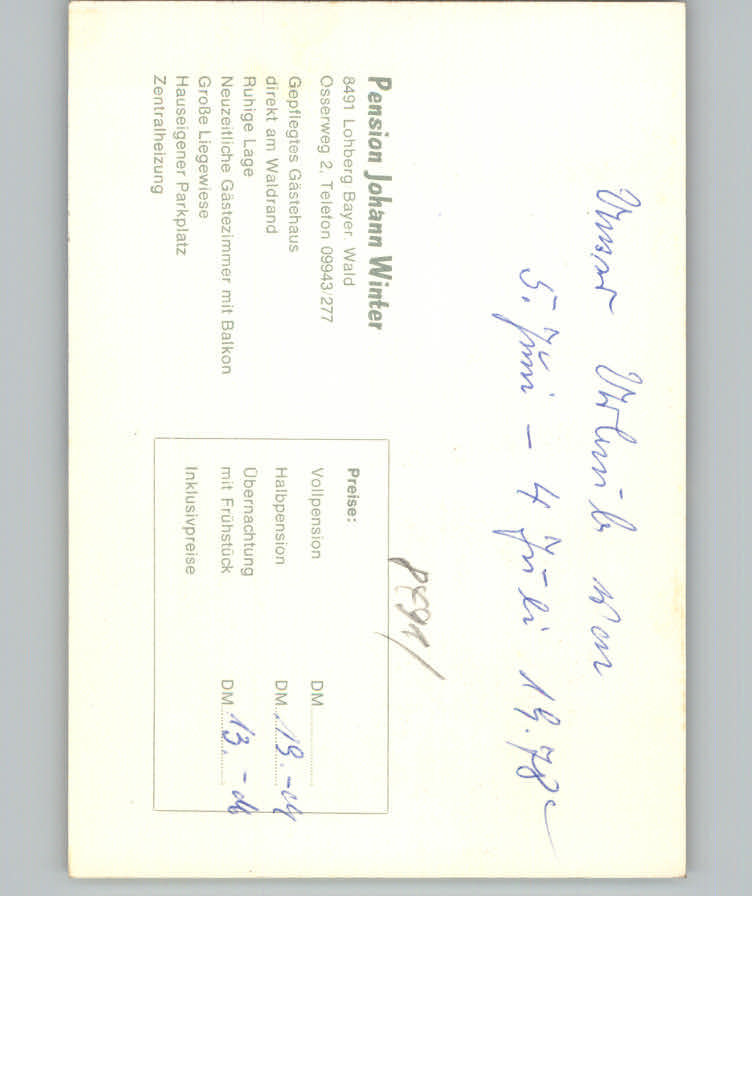 Unser Urlaub von
5. Juni – 4 Juli 19.78
Pension Johann Winter
8491 Lohberg Bayer. Wald
Osserweg 2, Telefon 09943/277
Gepflegtes Gästehaus
direkt am Waldrand
Ruhige Lage
Neuzeitliche Gästezimmer mit Balkon
Große Liegewiese
Hauseigener Parkplatz
Zentralheizung
Preise:
Vollpension DM
Halbpension DM 19.-
Übernachtung
mit Frühstück DM 13.-
Inklusivpreise